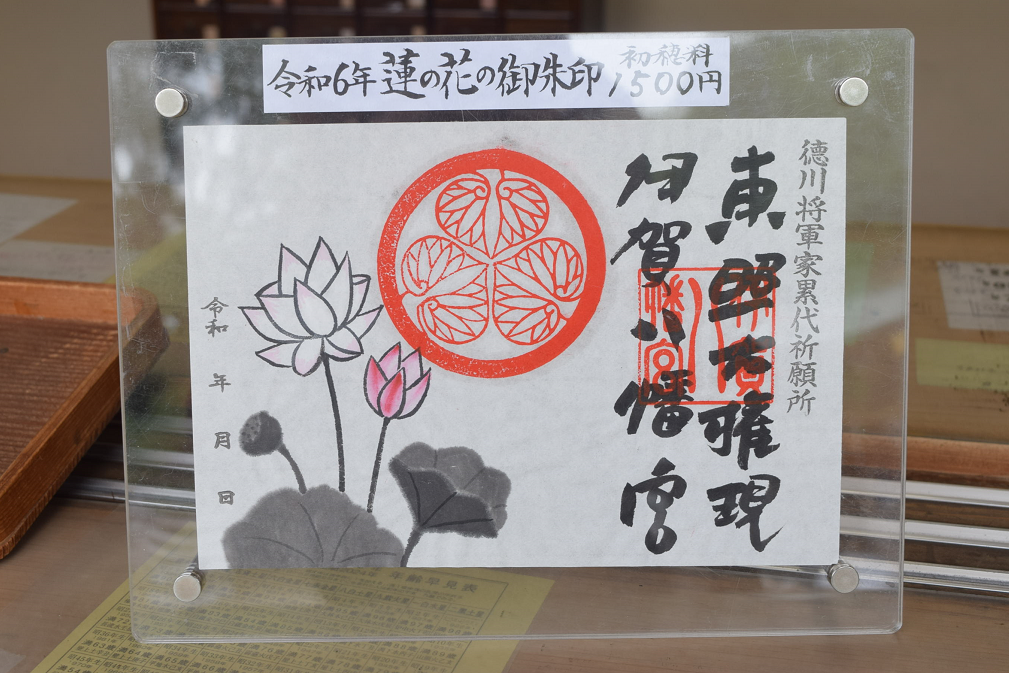 令和6年蓮の花の御朱印
初穂料
1500円
徳川将軍家累代祈願所
東照大権現
伊賀八幡宮
令和 年 月 日
年齢早見表